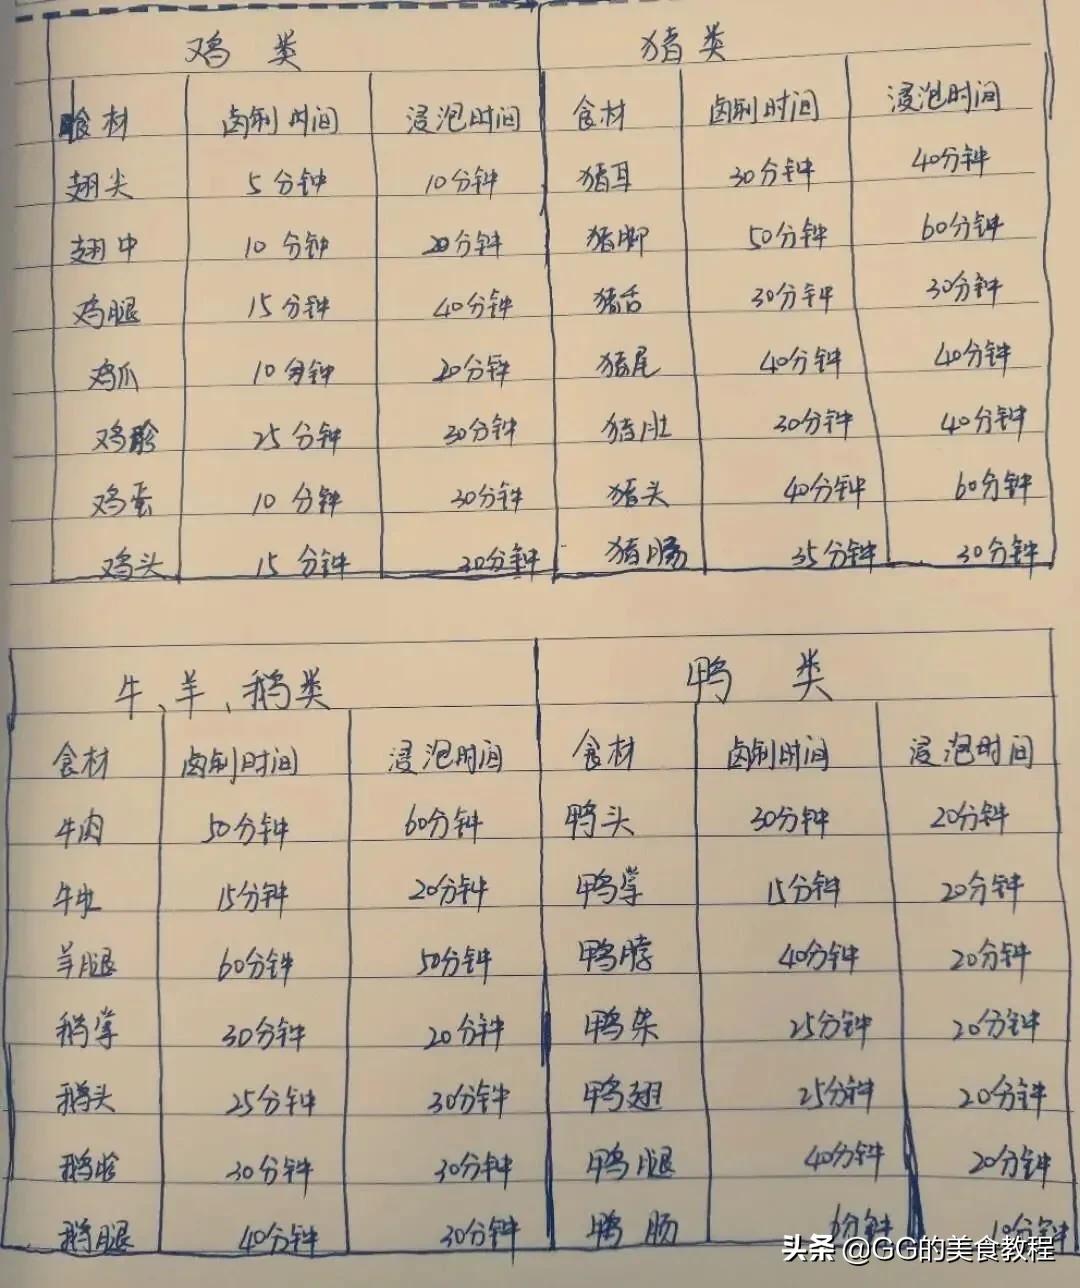 鸡类 猪类
食材 卤制时间 浸泡时间 食材 卤制时间 浸泡时间
翅尖 5分钟 10分钟 猪耳 30分钟 40分钟
翅中 10分钟 20分钟 猪脚 50分钟 60分钟
鸡腿 15分钟 40分钟 猪舌 30分钟 30分钟
鸡爪 10分钟 20分钟 猪尾 40分钟 40分钟
鸡胗 25分钟 30分钟 猪肚 30分钟 40分钟
鸡蛋 10分钟 30分钟 猪头 40分钟 60分钟
鸡头 15分钟 30分钟 猪肠 35分钟 30分钟
牛、羊、鹅类 鸭类
食材 卤制时间 浸泡时间 食材 卤制时间 浸泡时间
牛肉 50分钟 60分钟 鸭头 30分钟 20分钟
15分钟 20分钟 鸭掌 15分钟 20分钟
羊腿 60分钟 50分钟 鸭脖 40分钟 20分钟
鹅掌 30分钟 20分钟 25分钟 20分钟
鹅头 25分钟 30分钟 鸭翅 25分钟 20分钟
鹅胗 30分钟 30分钟 鸭腿 40分钟 20分钟
鹅腿 40分钟 30分钟 鸭肠 分钟 10分钟
头条 @GG的美食教程